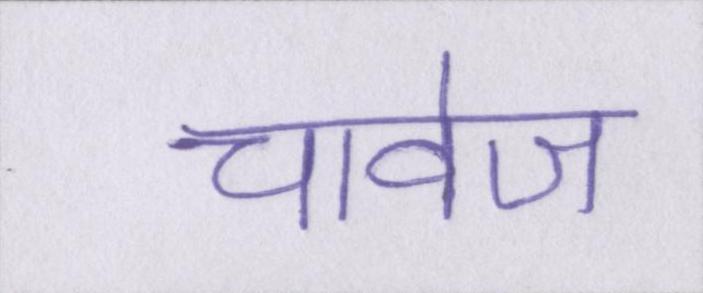 चावेज